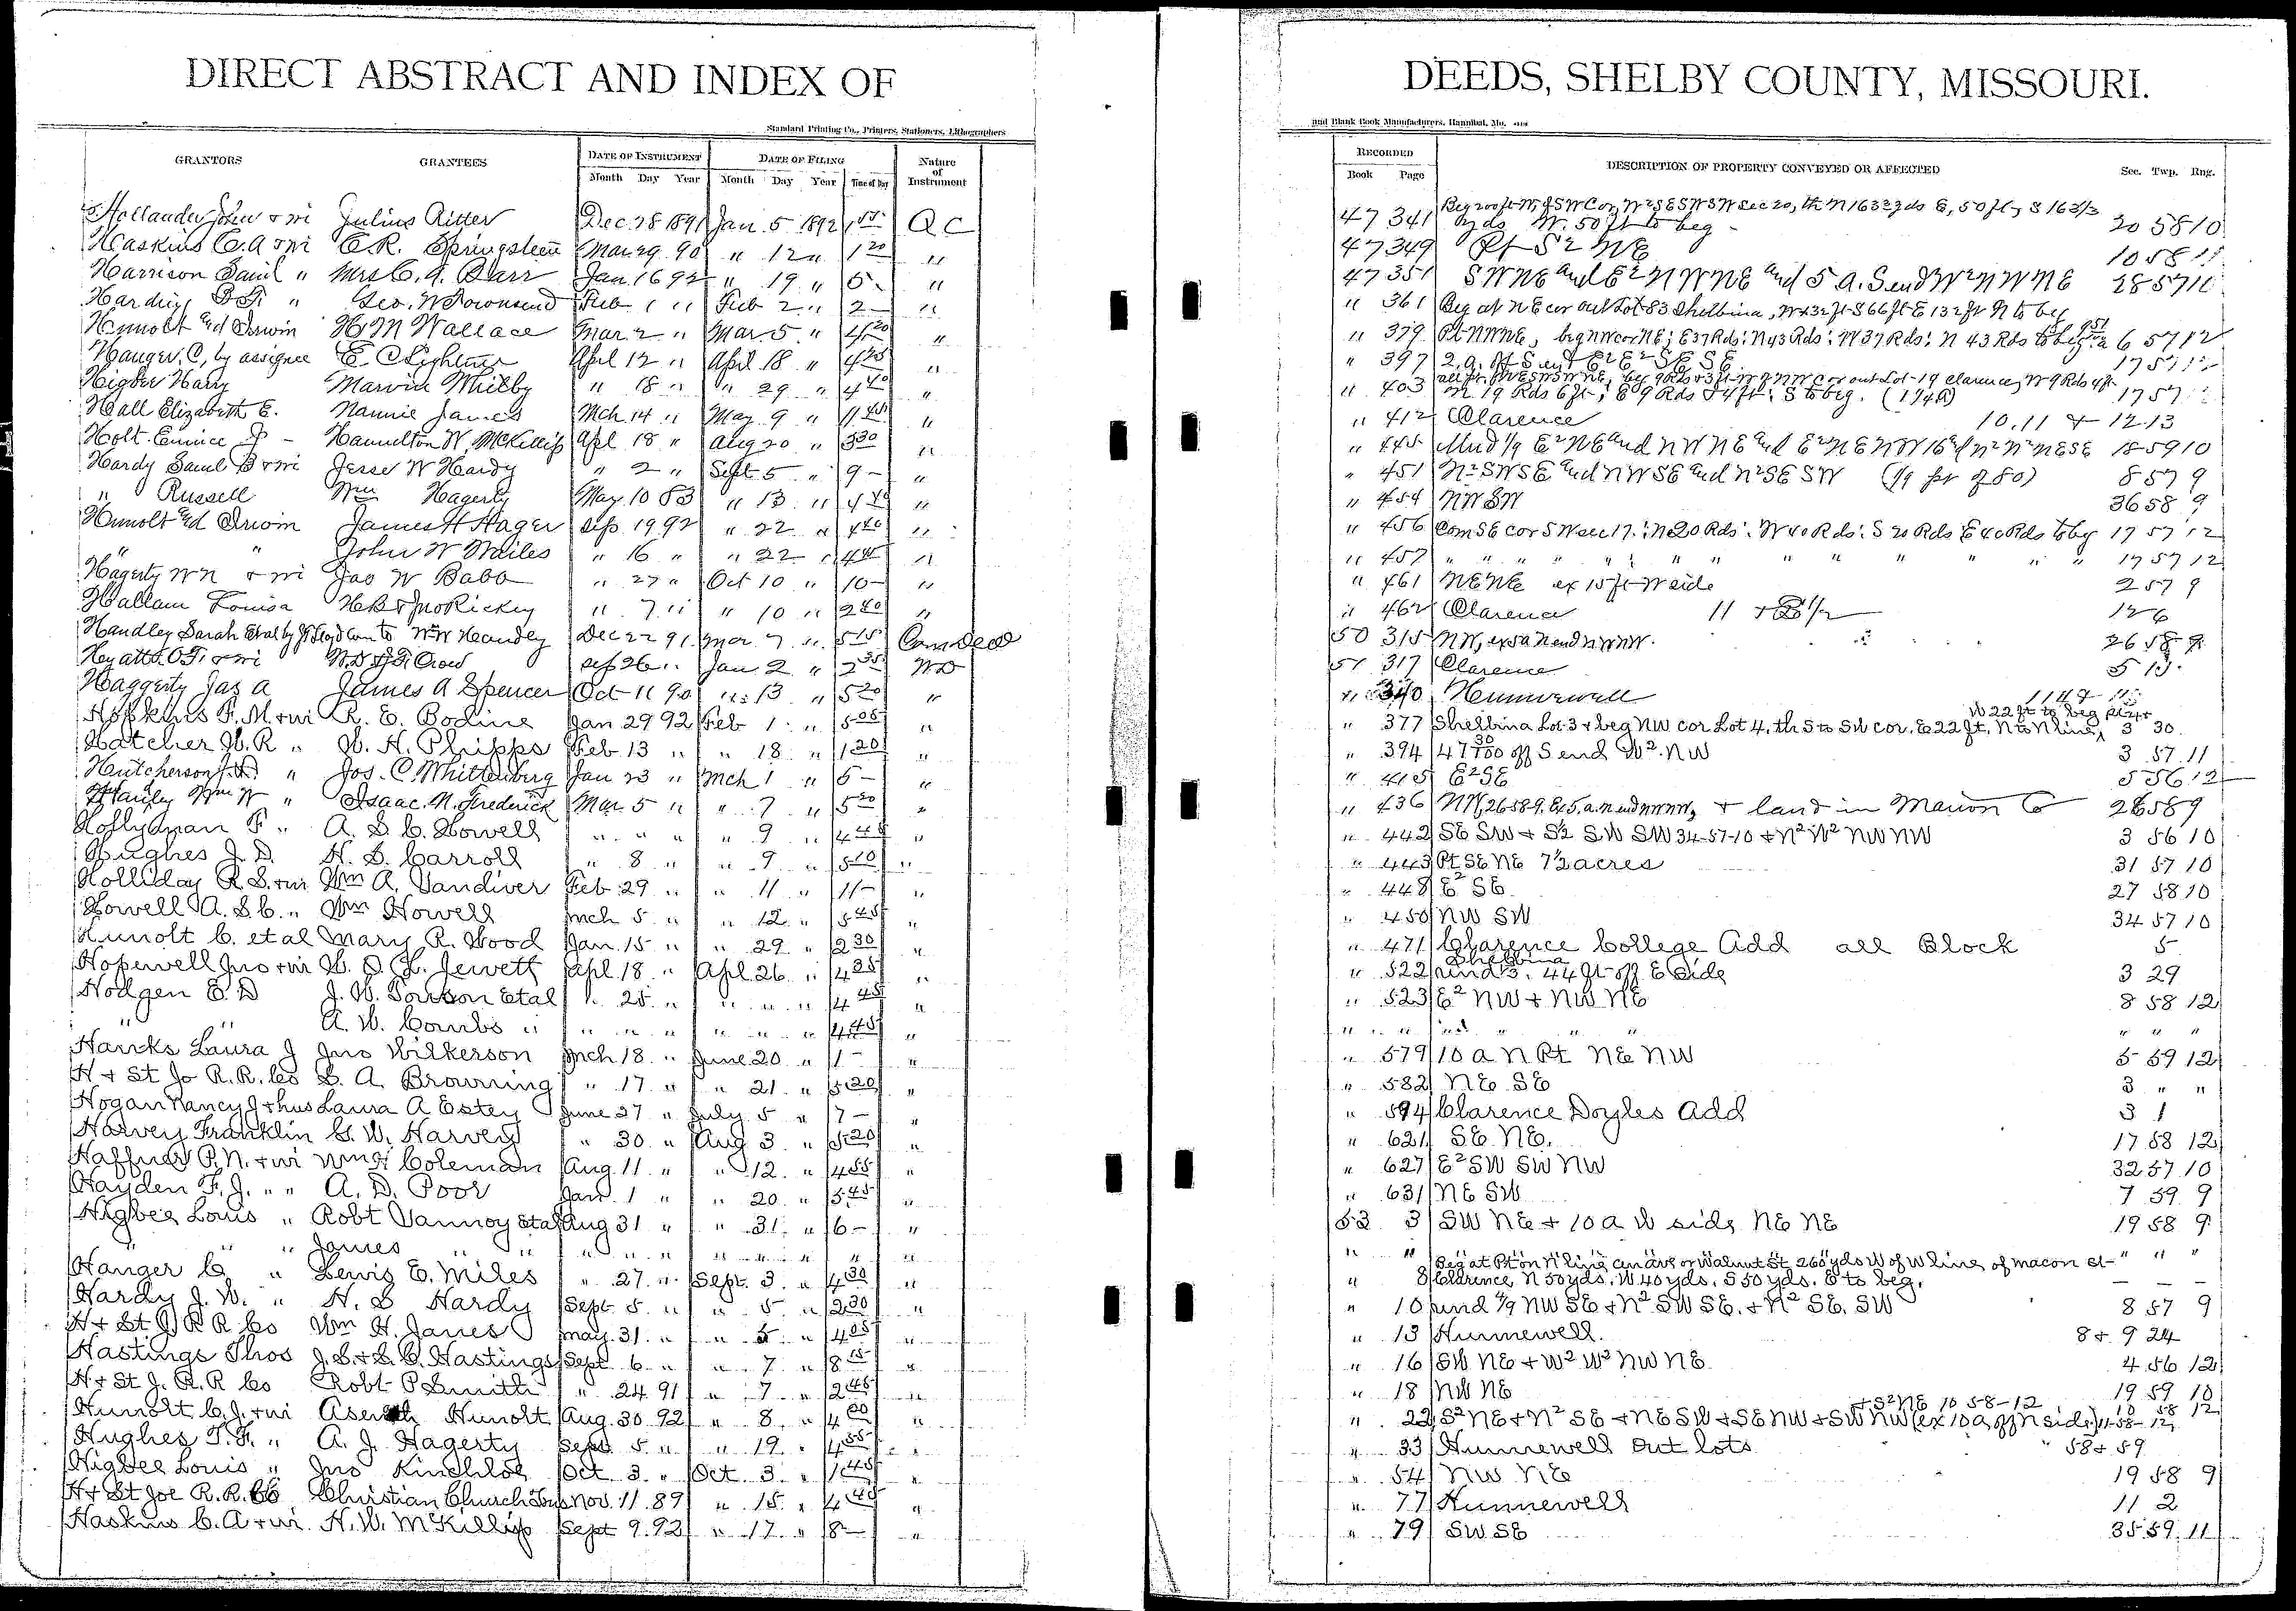 DIRECT ABSTRACT AND INDEX OF
Standard Printing Co., Printers, Stationers, Lithographers
GRANTORS GRANTEES DATE OF INSTRUMENT DATE OF FILING Nature of Instrument
Month Day Year Month Day Year Time of Day
Hollander John & wi Julius Ritter Dec. 28 1891 Jan. 5 1892 Q C
Haskins C. A & wi E. R. Springsteen Mar 29 90 " 12 " 1 20 "
Harrison Saml " Mrs C. A. Barr Jan. 16 92 " 19 " 5 - "
Harding " Geo. W Townsend Feb 1 " Feb 2 " 2 - "
Hunolt and Irwin H M Wallace Mar 2 " Mar. 5 " 4 20 "
Hanger, C, by assignee E C Lighter April 12 " April 18 " "
Higbee Harry Marvin Whitby " 18 " " 29 " 4 40 "
Hall Elizabeth E. Nannie James Mch 14 " May 9 " 11 45 "
Holt Eunice J - Hamilton W. McKillip Apl 18 " Aug 20 " 3 30 "
Hardy Saml B & wi Jesse W Hardy " 2 " Sept 5 " 9 - "
" Russell Wm Hagerty May 10 83 " 13 " 4 40 "
Hunolt and Irwin James H Hager Sep 19 92 " 22 " 4 40 "
" " John W Miles " 16 " " 22 " 4 45 "
Hagerty W N & wi Jao W Baba " 27 " Oct 10 " 10 - "
Hallam Louisa H B & Jno Rickey " 7 " " 10 " 2 40 "
Handley Sarah Etal by Com to Wm W Handley Dec 22 91 Mar 7 " 5 15 Com Deed
Hyatt O. F. & wi W. D & J. F. Crow Sep 26 " Jan. 2 " 2 35 W D
Haggerty Jas A James A Spencer Oct 11 90 " 13 " 5 20 "
Hopkins F. M. & wi R. E. Bodine Jan 29 92 Feb 1 " 5 05 "
Hatcher W. R " W. H. Phipps Feb 13 " " 18 " 1 20 "
Hutcherson " Jos. C. Whittenberg Jan 23 " Mch 1 " 5 - "
Hanley Wm W " Isaac. N. Frederick Mar 5 " " 7 " 5 20 "
Hollyman F " A. S. C. Howell " " " " 9 " 4 45 "
Hughes J. D. H. S. Carroll " 8 " " 9 " 5 10 "
Holliday R. S. & wi Wm A. Vandiver Feb 29 " " 11 " 11 - "
Howell A. S. C. " Wm Howell Mch 5 " " 12 " 5 45 "
Hunolt C. et al Mary R. Wood Jan. 15 " " 29 " 2 30 "
Hopewell Jno & wi H. O. L. Jewett Apl. 18 " Apl. 26 " 4 25 "
Hodgen E. D J. W. Towson Etal " 25 " " " " 4 45 "
" " A. W. Combs " " " " " " " 4 45 "
Hanks Laura J Jno Wilkerson Mch 18 " June 20 " 1 - "
H & St Jo R. R. Co S. A. Browning " 17 " " 21 " 5 20 "
Hogan Nancy J & hus Laura A Estey June 27 " July 5 " 7 - "
Harvey Franklin G. W. Harvey " 30 " Aug 3 " 5 20 "
Haffner P. N. & wi Coleman Aug. 11 " " 12 " 4 55 "
Hayden F. J. " " A. D. Poor Jan. 1 " " 20 " 5 45 "
Higbee Louis " Robt Vannoy etal Aug 31 " " 31 " 6 - "
" " " James " " " " " " " " " "
Hanger C " Lewis E. Miles " 27 " Sept. 3 " 4 30 "
Hardy J. W. " H. S Hardy Sept. 5 " " 5 " 2 30 "
H & St J R R Co Wm H. Janes May 31 " " 5 " 4 05 "
Hastings Thos J. S. & S. C. Hastings Sept 6 " " 7 " 8 15 "
H & St J. R. R Co Robt P Smith " 24 91 " 7 " 2 45 "
Hunolt C. J. & wi Hunolt Aug. 30 92 " 8 " 4 20 "
Hughes T. F. " A. J. Hagerty Sept 5 " " 19 " 4 55 "
Higbee Louis " Jno Kinchloe Oct 3 " Oct. 3 " 1 45 "
H & St Joe R. R. Co Christian Church Nov. 11 89 " 15 " 4 40 "
Haskins C. A & wi H. W. McKillip Sept 9 92 " 17 " 8 - "
DEEDS, SHELBY COUNTY, MISSOURI.
and Blank Book Manufacturers, Hannibal, Mo.
RECORDED DESCRIPTION OF PROPERTY CONVEYED OR AFFECTED Sec. Twp. Rng.
Book Page
47 341 Beg 200 ft W of SW Cor W2 SE SW SW sec 20, th N 163 2/3 yds E, 50 ft, S 163 2/3
yds W. 50 ft to beg - 20 58 10
47 349 Pt S2 NE 10 58 11
47 351 SW NE and E2 NW NE and 5 A. S end W2 NW NE 28 57 10
" 361 Beg at NE cor out Lot 83 Shelbina, W 132 ft S 66 ft E 132 ft N to beg
" 379 Pt NW NE, beg NW cor NE; E 37 Rds: N 43 Rds: W 37 Rds: N 43 Rds to beg 6 57 12
" 397 2 a. off S end E2 E2 SE SE 17 57
" 403 out Lot 19 Clarence, W 9 Rds 4 ft
N. 19 Rds 6 ft; E 9 Rds & 4 ft: S to beg. 17 57
" 412 Clarence 10, 11 & 12 13
" 445 Und 1/9 E2 NE and NW NE and E2 NE NW 16 and N2 N2 NE SE 18 59 10
" 451 N2 SW SE and NW SE and N2 SE SW (1/9 pt of 80) 8 57 9
" 454 NW SW 36 58 9
" 456 Com SE cor SW sec 17: N 20 Rds: W 40 Rds: S 20 Rds E 40 Rds to beg 17 57 12
" 457 " " " " " " " " " " " 17 57 12
" 461 NE NE ex 15 ft W side 2 57 9
" 462 Clarence 11 & E 1/2 12 6
50 315 NW, ex 5 a N end NW NW. 26 58 9
51 317 Clarence 5 13
" 340 Hunnewell
" 377 Shelbina Lot 3 & beg NW cor Lot 4, th S to SW cor. E 22 ft, N to N line, W 22 ft to beg 3 30
" 394 47 30/100 off S end W2 NW 3 57 11
" 415 E2 SE 5 56 12
" 436 NW, 26 58 9, Ex 5 a. N end NW NW, & land in Marion Co 26 58 9
" 442 SE SW & S 1/2 SW SW 34-57-10 & N2 W2 NW NW 3 56 10
" 443 Pt SE NE 7 1/2 acres 31 57 10
" 448 E2 SE 27 58 10
" 450 NW SW 34 57 10
" 471 Clarence College Add all Block 5
" 522 Shelbina und 1/3. 44 ft off E Side 3 29
" 523 E2 NW & NW NE 8 58 12
" " " und " " " " " "
" 579 10 a N Pt NE NW 5 59 12
" 582 NE SE 3 " "
" 594 Clarence Doyles Add 3 1
" 621 SE NE. 17 58 12
" 627 E2 SW SW NW 32 57 10
" 631 NE SW 7 59 9
53 3 SW NE & 10 a W side NE NE 19 58 9
" " " " " " " "
Beg at Pt on N line Walnut St 260 yds W of W line of Macon St
" 8 Clarence, N 50 yds. W 40 yds. S 50 yds. E to beg. - - -
" 10 und 4/9 NW SE & N2 SW SE. & N2 SE. SW 8 57 9
" 13 Hunnewell. 8 & 9 24
" 16 SW NE & W2 W2 NW NE 4 56 12
" 18 NW NE 19 59 10
& S2 NE 10 58-12
" 22 S2 NE & N2 SE & NE SW & SE NW & SW NW (ex 10 a off N side) 11-58-12 10 58 12
" 33 Hunnewell out lots 58 & 59
" 54 NW NE 19 58 9
" 77 Hunnewell 11 2
" 79 SW SE 35 59 11